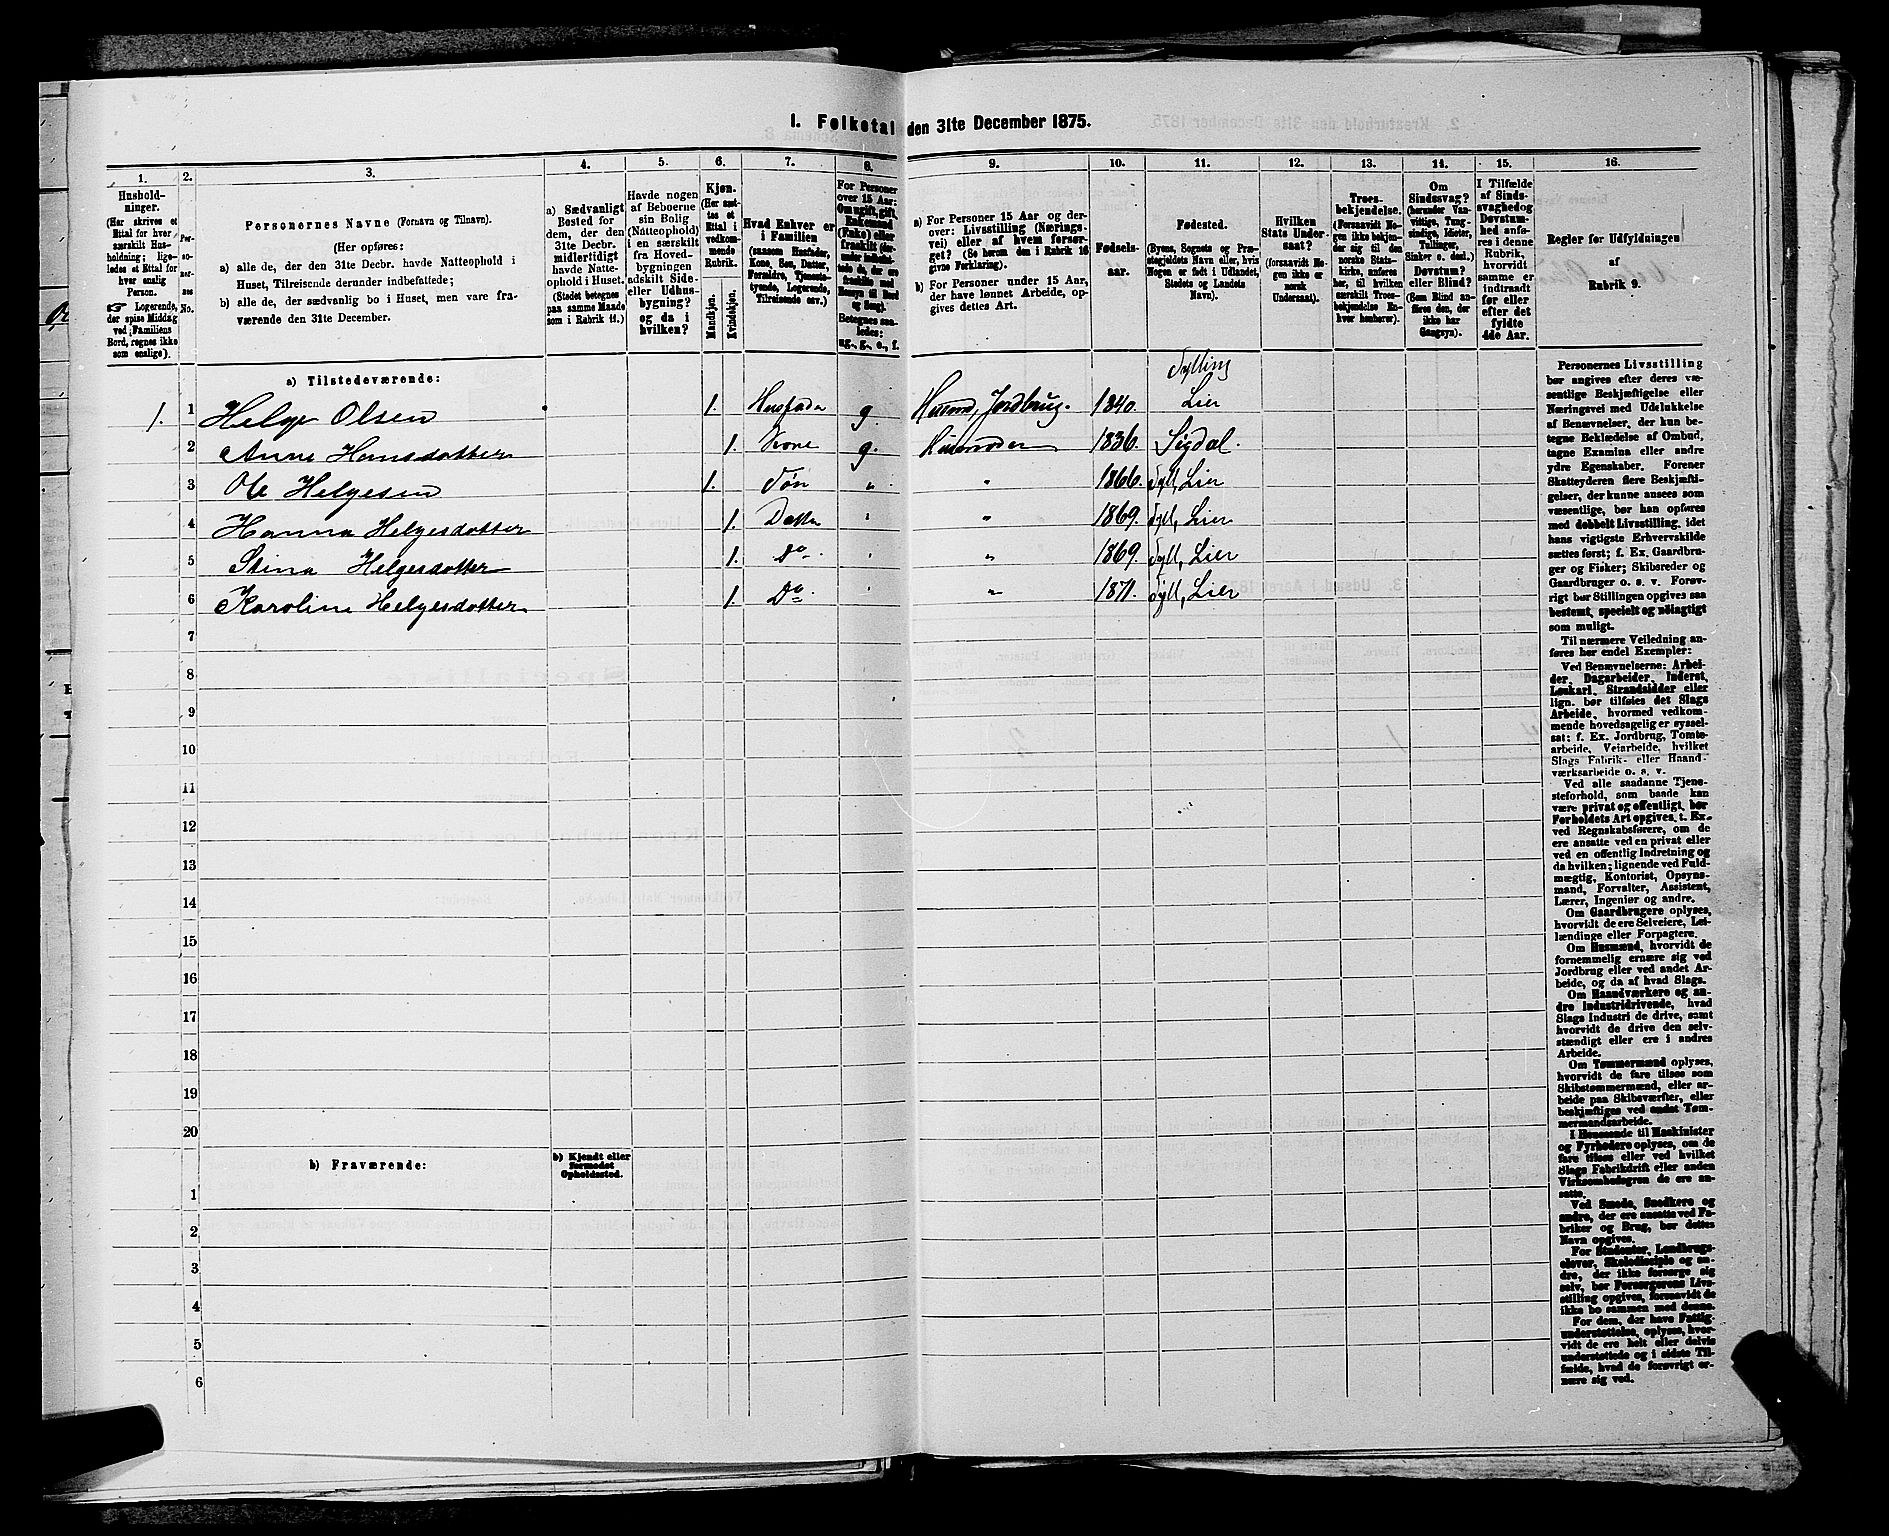 I. Folketal den 31te December 1875.
1.
Hushold-
ninger.
(Her skrives et
Ettal for hver
særskilt Hus-
holdning; lige-
ledes et Ettal for
hver enslig
Person.
Logerende,
der spise Middag
ved Familiens
Bord, regnes ikke
som enslige).
2.
Per-
so-
ner-
nes
No.
3.
Personernes Navne (Fornavn og Tilnavn).
(Her opføres:
a) alle de, der den 31te Decbr. havde Natteophold i
Huset, Tilreisende derunder indbefattede;
b) alle de, der sædvanlig bo i Huset, men vare fra-
værende den 31te December.
4.
a) Sædvanligt
Bosted for
dem, der den
31te Decbr.
midlertidigt
havde Natte-
ophold i Huset.
(Stedet betegnes
paa samme Maade
som i Rubrik 11.)
5.
Havde nogen
af Beboerne
sin Bolig
(Natteophold)
i en særskilt
fra Hoved-
bygningen
adskilt Side-
eller Udhus-
bygning?
og da i
hvilken?
6.
Kjøn.
(Her sæt-
tes et
Ettal i
vedkom-
mende
Rubrik.
Mandkjøn.
Kvindekjøn.
7.
Hvad Enhver er
i Familien
(saasom Husfader,
Kone, Søn, Datter,
Forældre, Tjeneste-
tyende, Logerende,
Tilreisende osv.)
8.
For Personer
over 15 Aar:
Om ugift, gift,
Enkemand
(Enke) eller
fraskilt
Betegnes saa-
ledes:
ug., g., e., f.
9.
a) For Personer 15 Aar og der-
over: Livsstilling (Nærings-
vei) eller af hvem forsør-
get? (Se herom den i Rubrik 16
givne Forklaring).
b) For Personer under 15 Aar,
der have lønnet Arbeide, op-
gives dettes Art.
10.
Fødsels-
aar.
11.
Fødested.
(Byens, Sognets og Præ-
stegjeldets Navn eller, hvis
Nogen er født i Udlandet,
Stedets og Landets
Navn).
12.
Hvilken
Stats Under-
saat?
(forsaavidt No-
gen ikke er
norsk
Undersaat).
13.
Troes-
bekjendelse.
(Forsaavidt No-
gen ikke bekjen-
der sig til den
norske Stats-
kirke, anføres
her, til hvilken
særskilt Troes-
bekjendelse En-
hver henhører).
14.
Om
Sindssvag?
(herunder Van-
vittige, Tung-
sindige, Idioter,
Tullinger,
Sinker o. desl.)
Døvstum?
eller Blind?
(Som Blind an-
føres den, der
ikke har
Gangsyn).
15.
I Tilfælde
af Sinds-
svaghed og
Døvstum-
hed anfø-
res i denne
Rubrik,
hvorvidt
samme er
indtraadt
før eller
efter det
fyldte
4de Aar.
16.
Regler for Udfyldningen
af
Rubrik 9.
a) Tilstedeværende:
Tylling
1. 1 Helge Olsen 1. Husfader g. Jordbrug. 1840. Lier
2 Anne Hansdotter 1. Kone g. 1836. Sigdal.
3 Ole Helgesen 1. Søn " " 1866. Tyll, Lier
4 Hanna Helgesdotter 1. Datter " " 1869. Tyll, Lier
5 Stina Helgesdotter 1. Do. " " 1869. Tyll, Lier
6 Karoline Helgesdotter 1. Do. " " 1871. Tyll, Lier
7
8
9
10
11
12
13
14
15
16
17
18
19
20
b) Fraværende:
b) Kjendt eller
formodet
Opholdssted.
1
2
3
4
5
6
Personernes Livsstilling
bør angives efter deres væ-
sentlige Beskjæftigelse eller
Næringsvei med Udelukkelse
af Benævnelser, der kun be-
tegne Beklædelse af Ombud,
tagne Examina eller andre
ydre Egenskaber. Forener
Skatteyderen flere Beskjæfti-
gelser, der kunne ansees som
væsentlige, bør han opføres
med dobbelt Livsstilling, idet
hans vigtigste Erhvervskilde
sættes først; f. Ex. Gaardbru-
ger og Fisker; Skibsreder og
Gaardbruger o. s. v. Forøv-
rigt bør Stillingen opgives saa
bestemt, specielt og nøiagtigt
som muligt.
Til nærmere Veiledning an-
føres her endel Exempler:
Ved Benævnelserne: Arbei-
der, Dagarbeider, Inderst,
Løskarl, Strandsidder eller
lign. bør tilføies det Slags
Arbeide, hvormed vedkom-
mende hovedsagelig er syssel-
sat; f. Ex. Jordbrug, Tomte-
arbeide, Veiarbeide, hvilket
Slags Fabrik- eller Haand-
værksarbeide o. s. v.
Ved alle saadanne Tjene-
steforhold, som baade kan
være privat og offentligt, bør
Forholdets Art opgives, t. Ex.
ved Regnskabsførere, om de
ere ansatte ved en privat eller
ved en offentlig Indretning og
da hvilken; lignende ved Fuld-
mægtig, Kontorist, Opsyns-
mand, Forvalter, Assistent,
Lærer, Ingeniør og andre.
Om Gaardbrugere oplyses,
hvorvidt de ere Selveiere, Lei-
lændinge eller Forpagtere.
Om Husmænd, hvorvidt de
fornemmelig ernære sig ved
Jordbrug eller ved andet Ar-
beide, og da af hvad Slags.
Om Haandværkere og an-
dre Industridrivende, hvad
Slags Industri de drive, samt
hvorvidt de drive den selv-
stændigt eller ere i andres
Arbeide.
Om Tømmermænd oplyses,
hvorvidt de fare tilsøs som
Skibstømmermænd, eller ar-
beide paa Skibsværfter, eller
beskjæftiges ved andet Tøm-
mermandsarbeide.
I Henseende til Maskinister
og Fyrbødere oplyses, om de
fare tilsøs eller ved hvilket
Slags Fabrikdrift eller anden
Virksomhedsgren de ere an-
satte.
Ved Smede, Snedkere og
andre, der ere ansatte ved Fa-
briker og Brug, bør dettes
Navn opgives.
For Studenter, Landbrugs-
elever, Skoledisciple og an-
dre, der ikke forsørge sig
selv, bør Forsørgerens Livs-
stilling opgives, forsaavidt de
ikke bo sammen med denne.
For dem, der have Fattig-
understøttelse, oplyses, hvor-
vidt de ere helt eller delvis
understøttede og i sidste Til-
fælde, hvad de forøvrigt er-
nære sig ved.